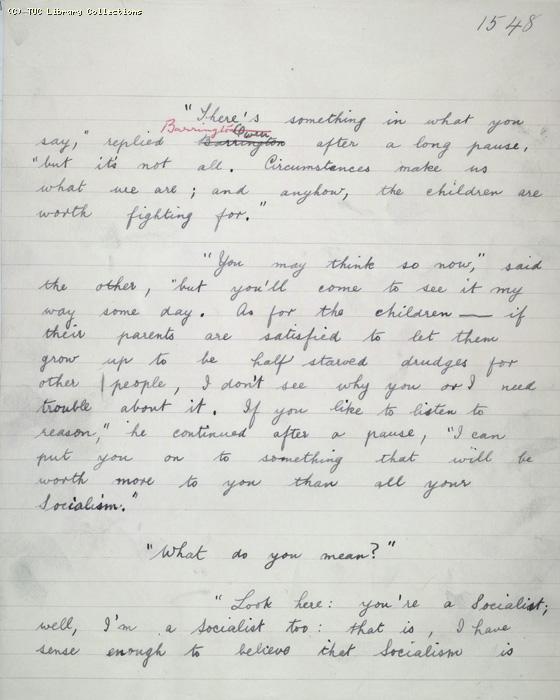 (C) TUC Library Collections
1548
"There's something in what you
Barrington Owen
say," replied Barrington after a long pause,
"but it's not all. Circumstances make us
what we are; and anyhow, the children are
worth fighting for."
"You may think so now," said
the other, "but you'll come to see it my
way some day. As for the children — if
their parents are satisfied to let them
grow up to be half starved drudges for
other people, I don't see why you or I need
trouble about it. If you like to listen to
reason," he continued after a pause, "I can
put you on to something that will be
worth more to you than all your
Socialism."
"What do you mean?"
"Look here: you're a Socialist;
well, I'm a Socialist too: that is, I have
sense enough to believe that Socialism is